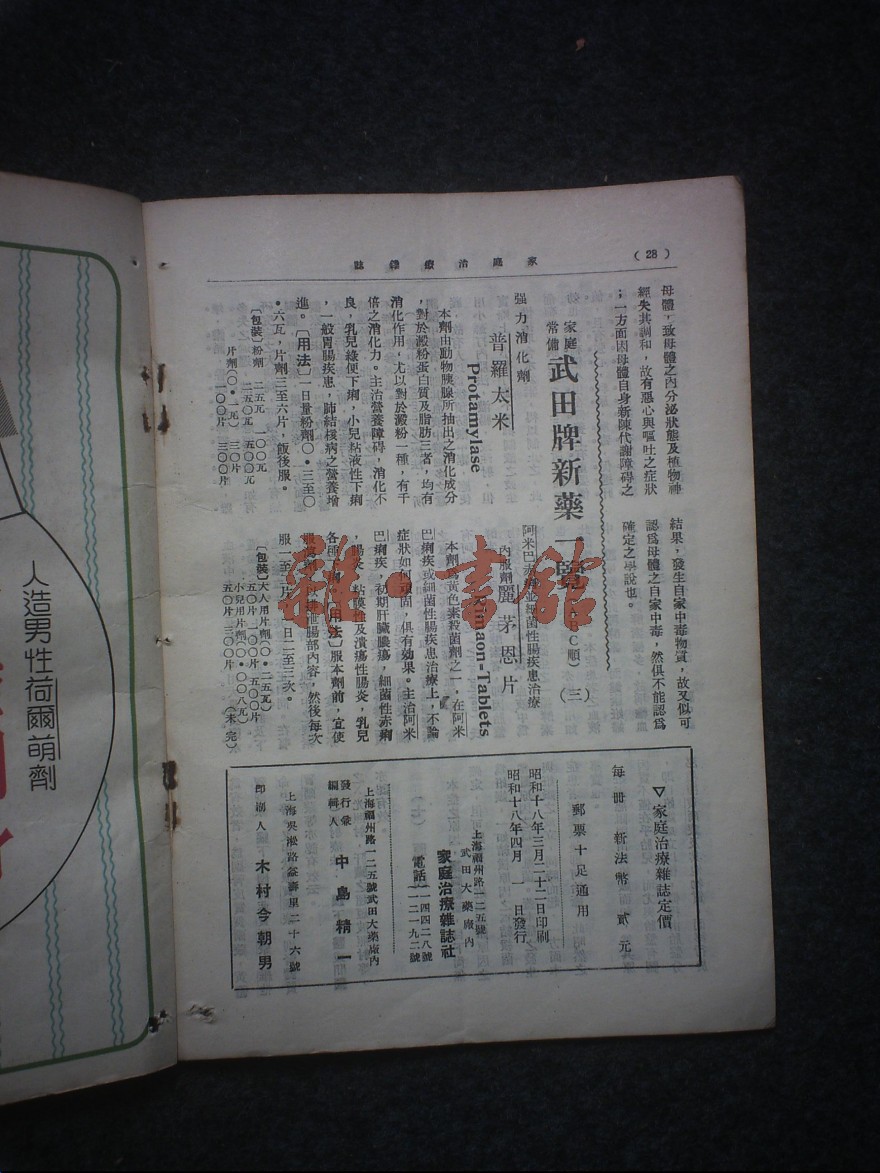 （28）
家庭治療雜誌
母體，致母體之內分泌狀態及植物神
經失其調和，故有惡心與嘔吐之症狀
；一方面因母體自身新陳代謝障碍之
結果，發生自家中毒物質，故又似可
認爲母體之自家中毒，然俱不能認爲
確定之學說也。
家庭常備
武田牌新藥一覽
C順）
（三）
强力消化劑
普羅太米
Protamylase
本劑由動物胰腺所抽出之消化成分
，對於澱粉蛋白質及脂肪三者，均有
消化作用，尤以對於澱粉一種，有千
倍之消化力。主治營養障碍，消化不
良，乳兒綠便下痢，小兒粘液性下痢
，一般胃腸疾患，肺結核病之營養增
進。〔用法〕一日量粉劑〇・三至〇
・六瓦，片劑三至六片，飯後服。
〔包裝〕粉劑 二五瓦 一〇〇瓦
二五〇瓦 五〇〇瓦
片劑（〇・一瓦）三〇片
一〇〇片 三〇〇片
阿米巴赤痢及細菌性腸疾患治療
內服劑
麗茅恩片
Rimaon-Tablets
本劑爲黃色素殺菌劑之一，在阿米
巴痢疾或細菌性腸疾患治療上，不論
症狀如何頑固，俱有効果。主治阿米
巴痢疾，初期肝臟膿瘍，細菌性赤痢
，腸炎，粘膜性及潰瘍性腸炎，乳兒
各種
用法〕服本劑前，宜使
排泄腸部內容，然後每次
服一至二片，一日二至三次。
〔包裝〕大人用片劑（〇・二五瓦）
五〇片 一〇〇片 五〇〇片
小兒用片劑（〇・〇〇八瓦）
五〇片 二〇〇片 （未完）
▽家庭治療雜誌定價
每冊 新法幣 貳元
郵票十足通用
昭和十八年三月二十二日印刷
昭和十八年四月 一日發行
上海福州路一二五號
武田大藥廠內
家庭治療雜誌社
電話 一四四二八號
一二一九二號
上海福州路一二五號武田大藥廠內
發行兼
編輯人 中島精一
上海吳淞路益壽里二十六號
印刷人 木村今朝男
人造男性荷爾萌劑
雜書館